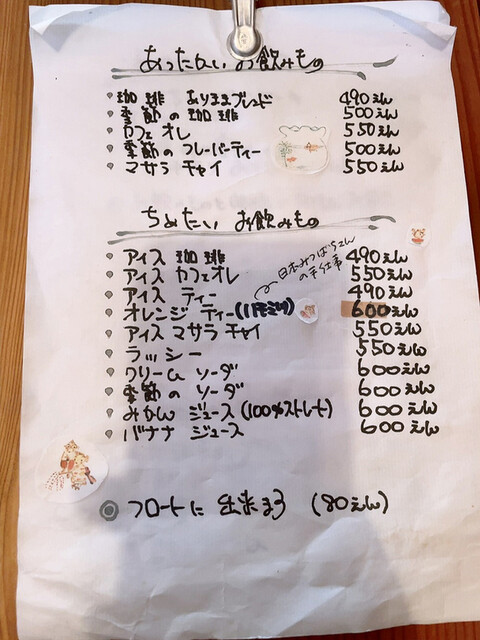 あったかい お飲みもの
珈琲 ありままブレンド 490えん
季節の珈琲 500えん
カフェオレ 550えん
季節のフレーバーティー 500えん
マサラ チャイ 550えん
ちめたい お飲みもの
アイス 珈琲 490えん
アイス カフェオレ 550えん
日本みつばちさんの手仕事
アイス ティー 490えん
オレンジ ティー(ハチミツ) 600えん
アイス マサラ チャイ 550えん
ラッシー 550えん
クリーム ソーダ 600えん
季節の ソーダ 600えん
みかん ジュース(100%ストレート) 600えん
バナナ ジュース 600えん
フロートに 出来まう (80えん)